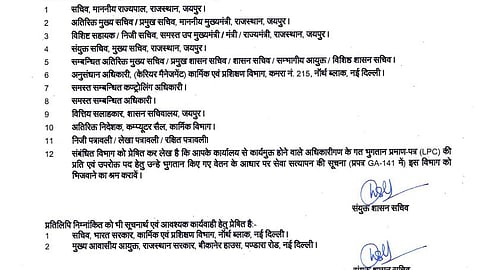 1 सचिव, माननीय राज्यपाल, राजस्थान, जयपुर।
2 अतिरिक्त मुख्य सचिव / प्रमुख सचिव, माननीय मुख्यमंत्री, राजस्थान, जयपुर।
3 विशिष्ट सहायक / निजी सचिव, समस्त उप मुख्यमंत्री / मंत्री / राज्यमंत्री, राजस्थान, जयपुर।
4 संयुक्त सचिव, मुख्य सचिव, राजस्थान, जयपुर।
5 सम्बन्धित अतिरिक्त मुख्य सचिव / प्रमुख शासन सचिव / शासन सचिव / सम्भागीय आयुक्त / विशिष्ठ शासन सचिव
6 अनुसंधान अधिकारी, (केरियर मैनेजमेंट) कार्मिक एवं प्रशिक्षण विभाग, कमरा नं. 215, नॉर्थ ब्लाक, नई दिल्ली।
7 समस्त सम्बन्धित कण्ट्रोलिंग अधिकारी।
8 समस्त सम्बन्धित अधिकारी।
9 वित्तिय सलाहकार, शासन सचिवालय, जयपुर।
10 अतिरिक्त निदेशक, कम्प्यूटर सैल, कार्मिक विभाग।
11 निजी पत्रावली / लेखा पत्रावली / रक्षित पत्रावली।
12 संबंधित विभाग को प्रेषित कर लेख है कि आपके कार्यालय से कार्यमुक्त होने वाले अधिकारीगण के गत भुगतान प्रमाण-पत्र (LPC) की
प्रति एवं उपरोक्त पद हेतु उन्हे भुगतान किए गए वेतन के आधार पर सेवा सत्यापन की सूचना (प्रपत्र GA-141 में) इस विभाग को
भिजवाने का श्रम करावें।
संयुक्त शासन सचिव
प्रतिलिपि निम्नांकित को भी सूचनार्थ एवं आवश्यक कार्यवाही हेतु प्रेषित है:-
1 सचिव, भारत सरकार, कार्मिक एवं प्रशिक्षण विभाग, नॉर्थ ब्लाक, नई दिल्ली।
2 मुख्य आवासीय आयुक्त, राजस्थान सरकार, बीकानेर हाउस, पण्डारा रोड, नई दिल्ली।
संयुक्त शासन सचिव